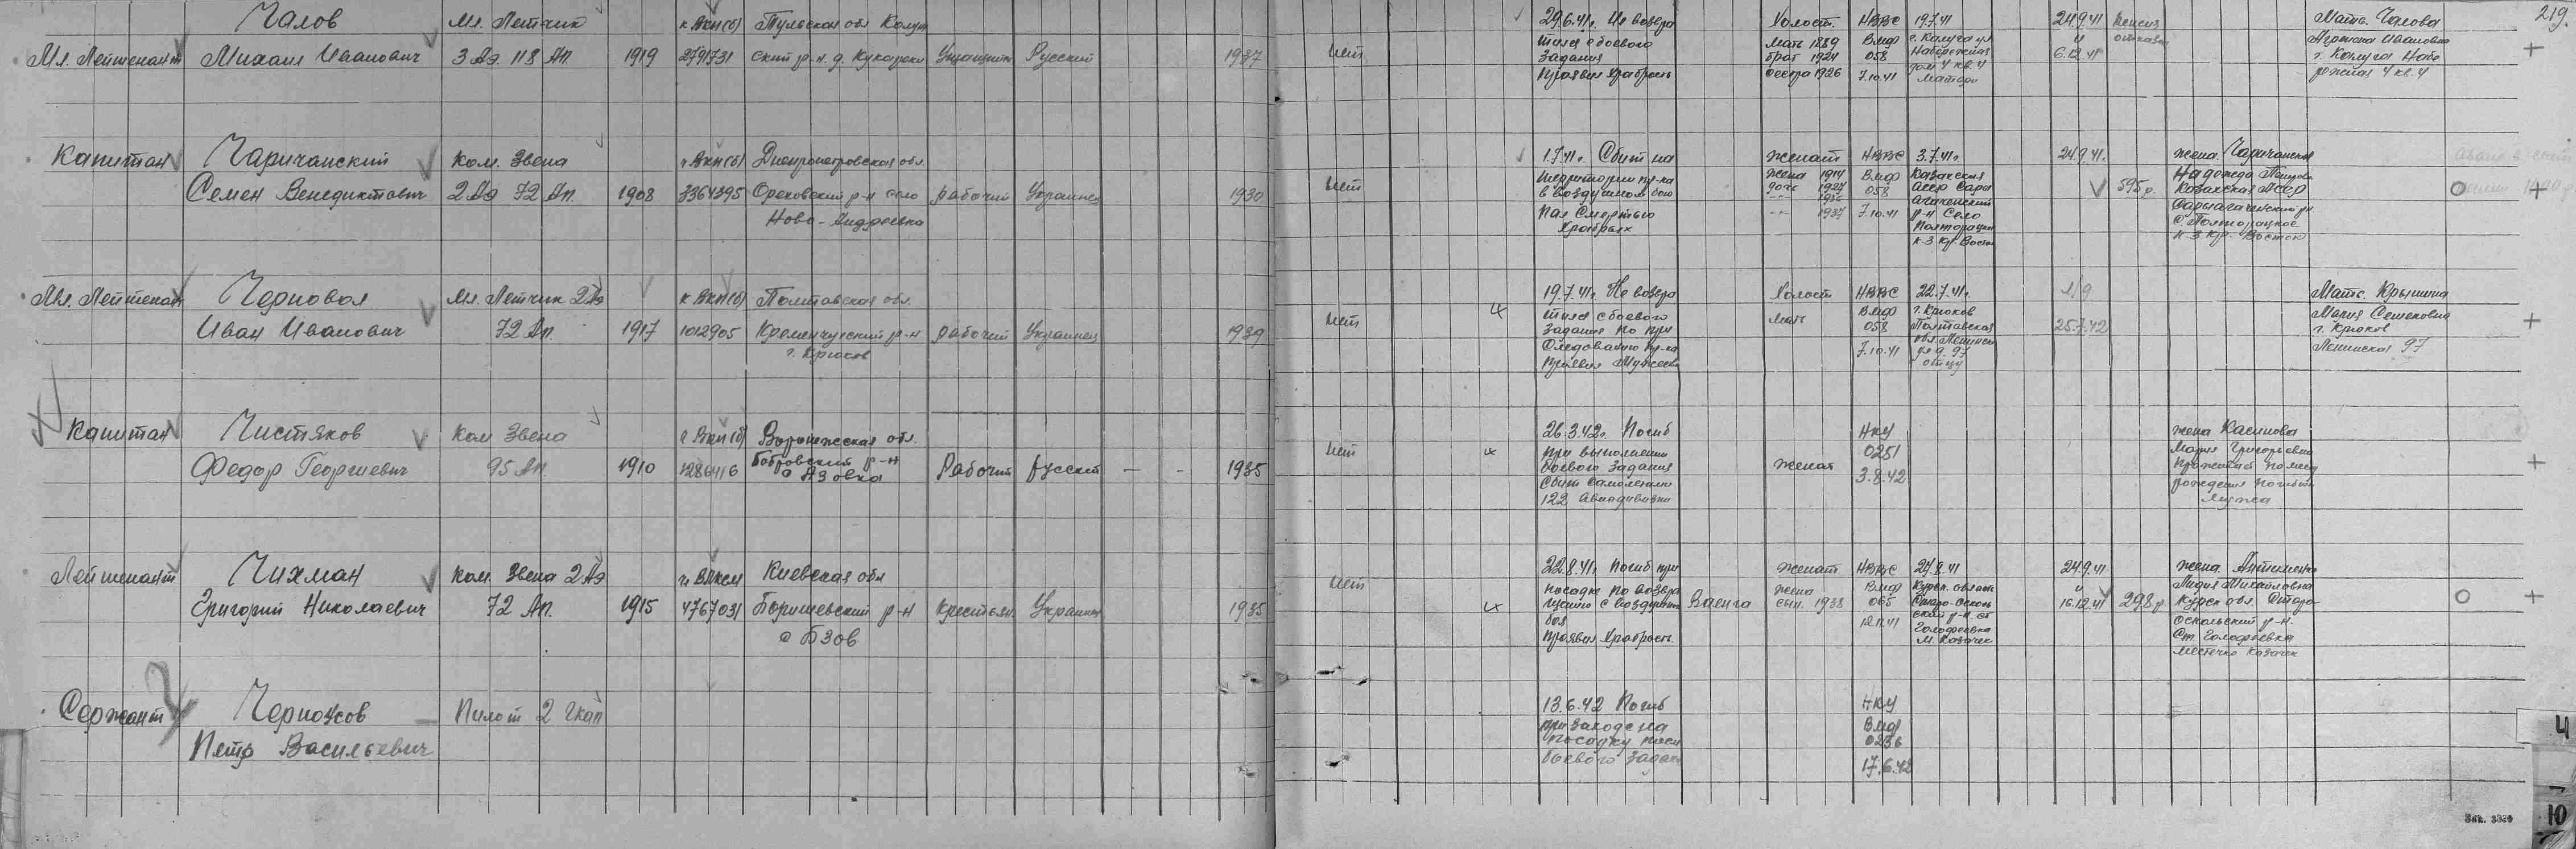 219
Чалов
Мл. Летчик
к ВКП(б)
Тульская обл Калуж
29.6.41г. Не возвра
Холост.
НВВС
19.7.41
24.9.41
Мать. Чалова
Мл. Лейтенант
Михаил Иванович
3 Аэ 118 Ап.
1919
2791731
ский р-н. д.
Учащийся
Русский
1937
нет
тился с боевого
задания
Проявил храбрость
мать 1889
брат 1924
сестра 1926
ВМФ
058
7.10.41
г. Калуга ул
Набережная
дом 4 кв. 4
матери
6.12.41
пенсия
отказ
Ивановна
г. Калуга Набе
режная 4 кв. 4
Капитан
Чаричанский
Ком. Звена
ч ВКП(б)
Днепропетровская обл.
1.7.41г. Сбит на
женат
НВВС
3.7.41г
24.9.41.
жена. Чаричанская
Семен Венедиктович
2 Аэ 72 Ап.
1908
3364395
Ореховский р-н село
Ново-Андреевка
рабочий
Украинец
1930
нет
территории пр-ка
в воздушном бою
Пал Смертью
Храбрых
жена 1914
дочь 1927
1937
ВМФ
058
7.10.41
Казахская
АССР Сары
агачский
р-н Село
Полторацкое
к-з Кр. Восток
595 р.
Надежда Петровна
Казахская АССР
Сарыагачский р-н
С Полторацкое
к-з Кр. Восток
Мл. Лейтенант
Черновол
Мл. Летчик 2 Аэ
к ВКП(б)
Полтавская обл.
19.7.41г. Не возвра
Холост
НВВС
22.7.41г.
Мать. Крынина
Иван Иванович
72 Ап.
1917
1012905
Кременчугский р-н
г. Крюков
рабочий
Украинец
1939
нет
тился с боевого
задания по при
следованию пр-ка
Проявил Мужество
мать
ВМФ
058
7.10.41
г. Крюков
Полтавская
обл. Ленинск
ул д. 97
отцу
25.7.42
Мария Семеновна
г. Крюков
Ленинская 97
Капитан
Чистяков
Ком Звена
ч ВКП(б)
Воронежская обл.
26.3.42г. Погиб
НКУ
жена Касинова
Федор Георгиевич
95 Ап
1910
1286416
Бобровский р-н
с Азовка
Рабочий
Русский
1935
нет
при выполнении
боевого задания
Сбит самолетами
122 Авиадивизии
женат
0251
3.8.42
Мария Григорьевна
проживает по месту
рождения погибшего
мужа
Лейтенант
Чихман
Ком. Звена 2 Аэ
ч ВЛКСМ
Киевская обл
22.8.41г. Погиб при
женат
НВВС
27.8.41
24.9.41
жена.
Григорий Николаевич
72 Ап.
1915
4767031
Боришевский р-н
с Бзов
крестьян.
Украинец
1935
нет
посадке по возвра
щению с воздушно
боя
Проявил Храбрость.
Ваенга
жена
сын. 1938
ВМФ
065
12.11.41
Курск. область
Старо-Осколь
ский р-н. ст
Голофеевка
М. Казачек
16.12.41
298 р.
Лидия Михайловна
Курск обл. Старо-
оскольский р-н.
Ст. Голофеевка
местечко Казачек
Сержант
Черноусов
Пилот 2 гкап
13.6.42 Погиб
НКУ
Петр Васильевич
при заходе на
посадку посл
боевого задани
ВМФ
0236
17.6.42
Ч
10
Зак. 3320